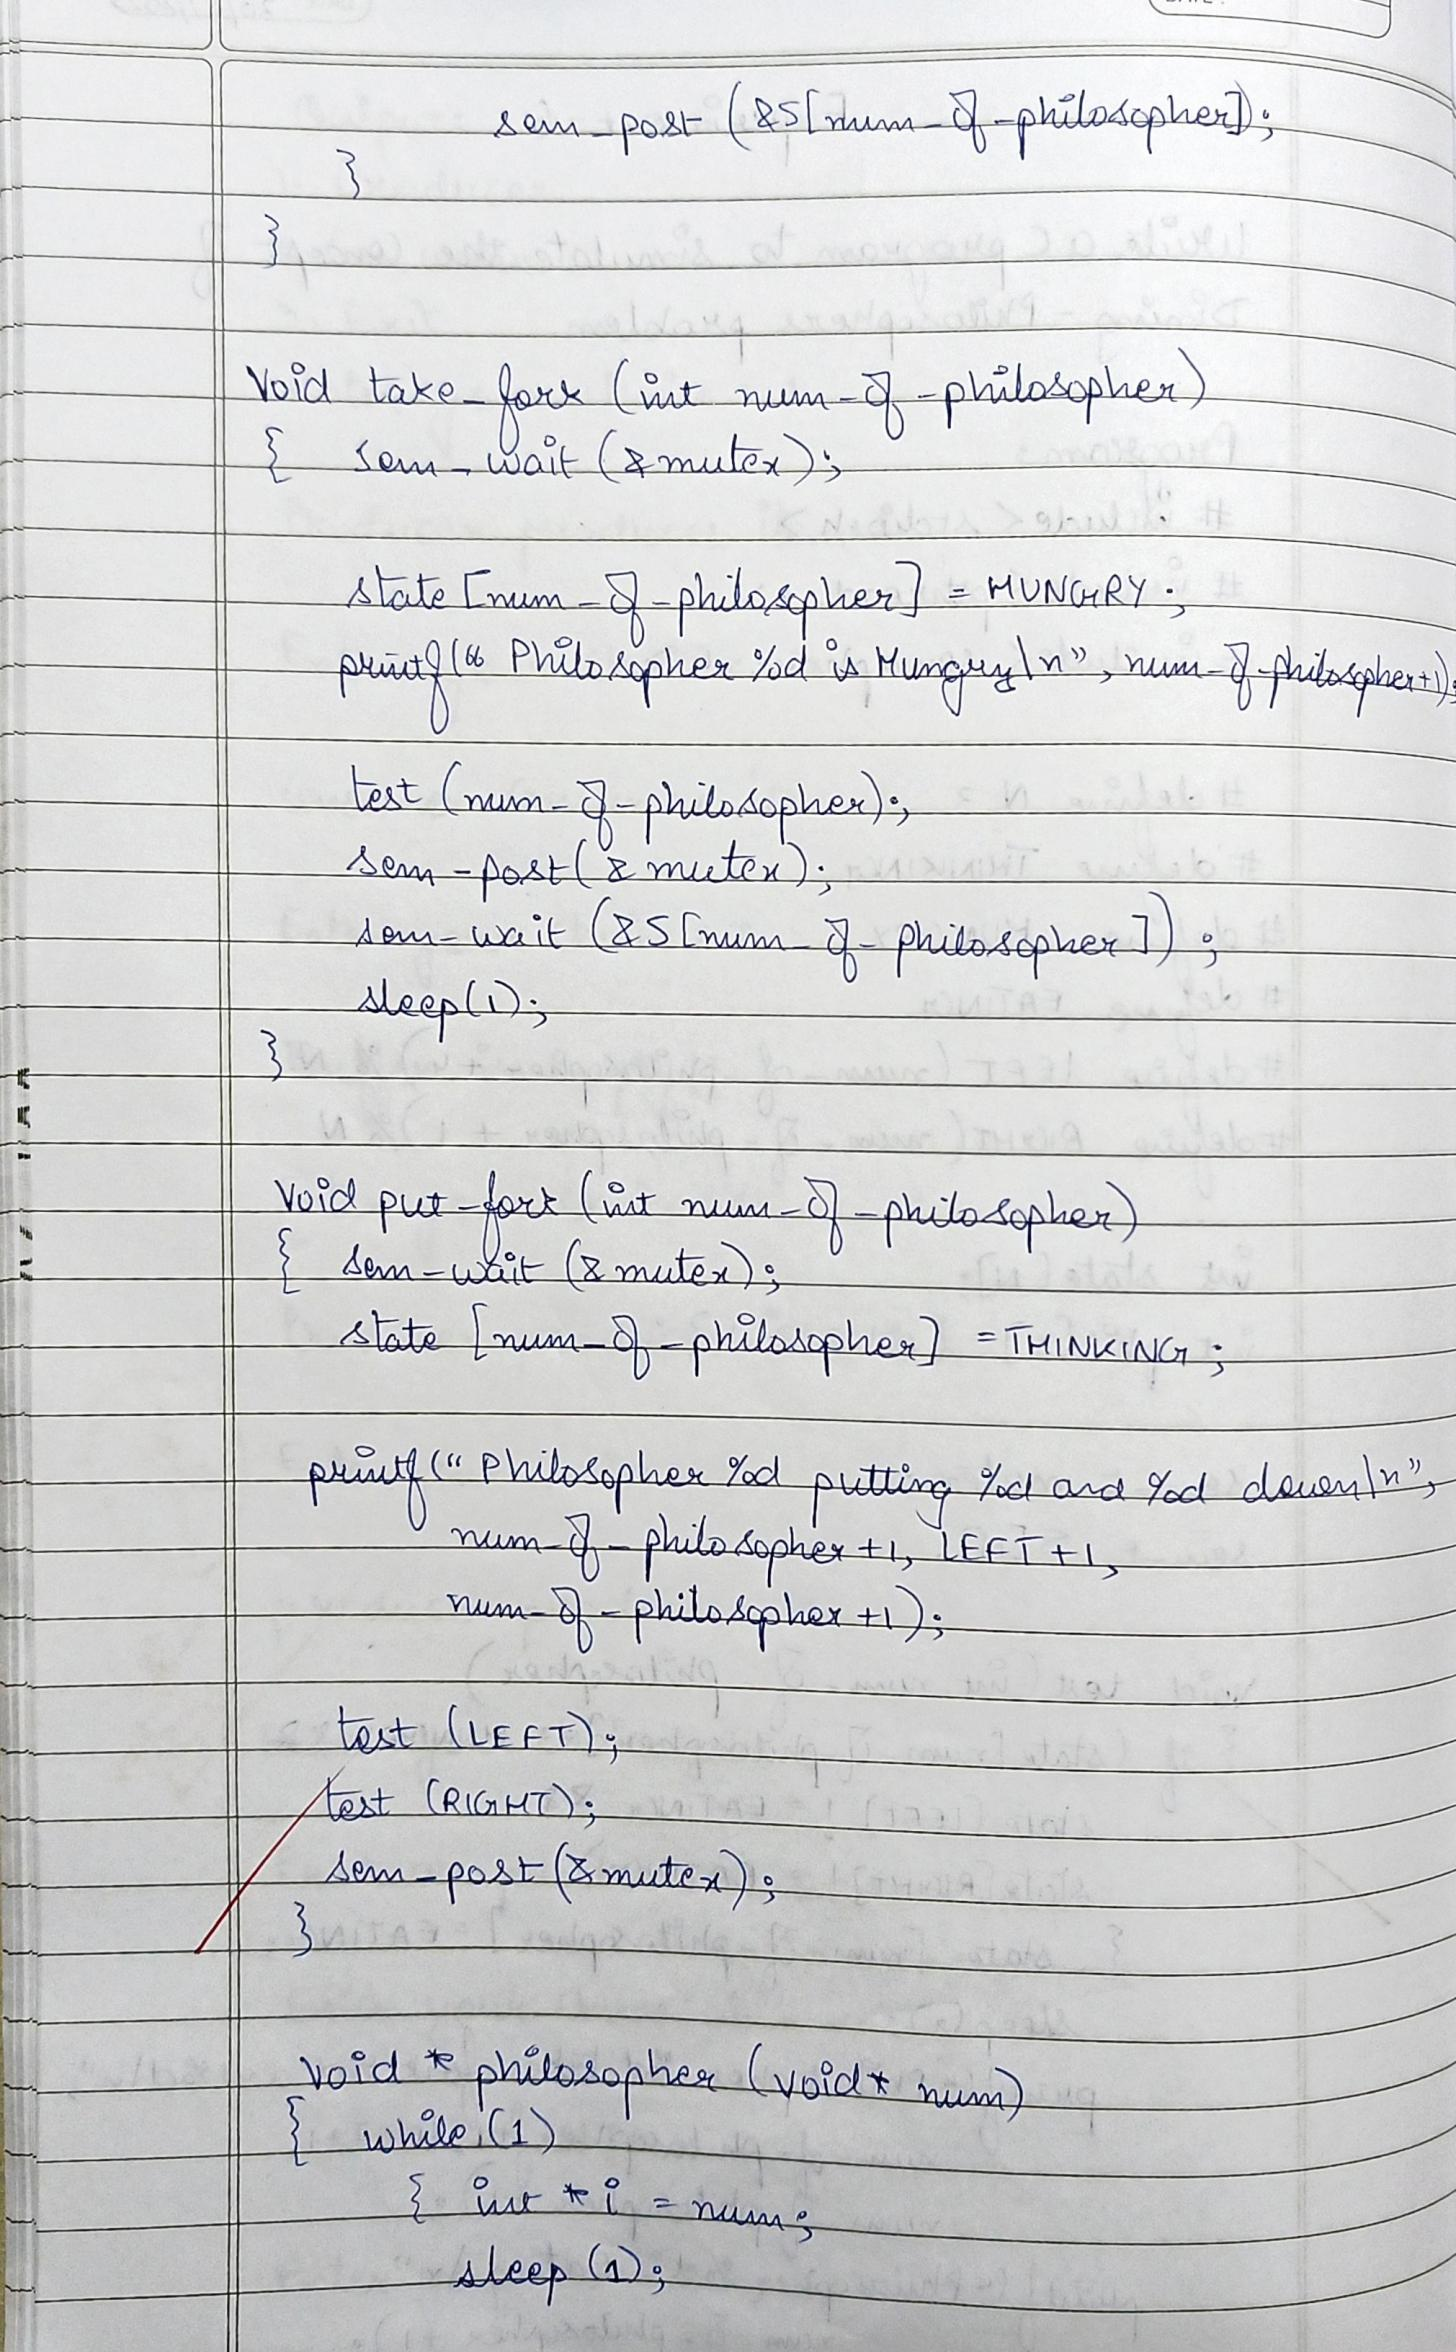 sem_post (&S[num_of_philosopher]);
}
}
Void take_fork (int num_of_philosopher)
{ sem_wait (&mutex);
state [num_of_philosopher] = HUNGRY;
printf(" Philosopher %d is Hungry\n", num_of_philosopher+1);
test (num_of_philosopher);
sem_post(&mutex);
sem_wait (&S[num_of_philosopher]);
sleep(1);
}
Void put_fork (int num_of_philosopher)
{ sem_wait (&mutex);
state [num_of_philosopher] = THINKING;
printf(" Philosopher %d putting %d and %d down\n",
num_of_philosopher+1, LEFT+1,
num_of_philosopher+1);
test (LEFT);
test (RIGHT);
sem_post(&mutex);
}
Void * philosopher (void* num)
{ while (1)
{ int *i = num;
sleep (1);